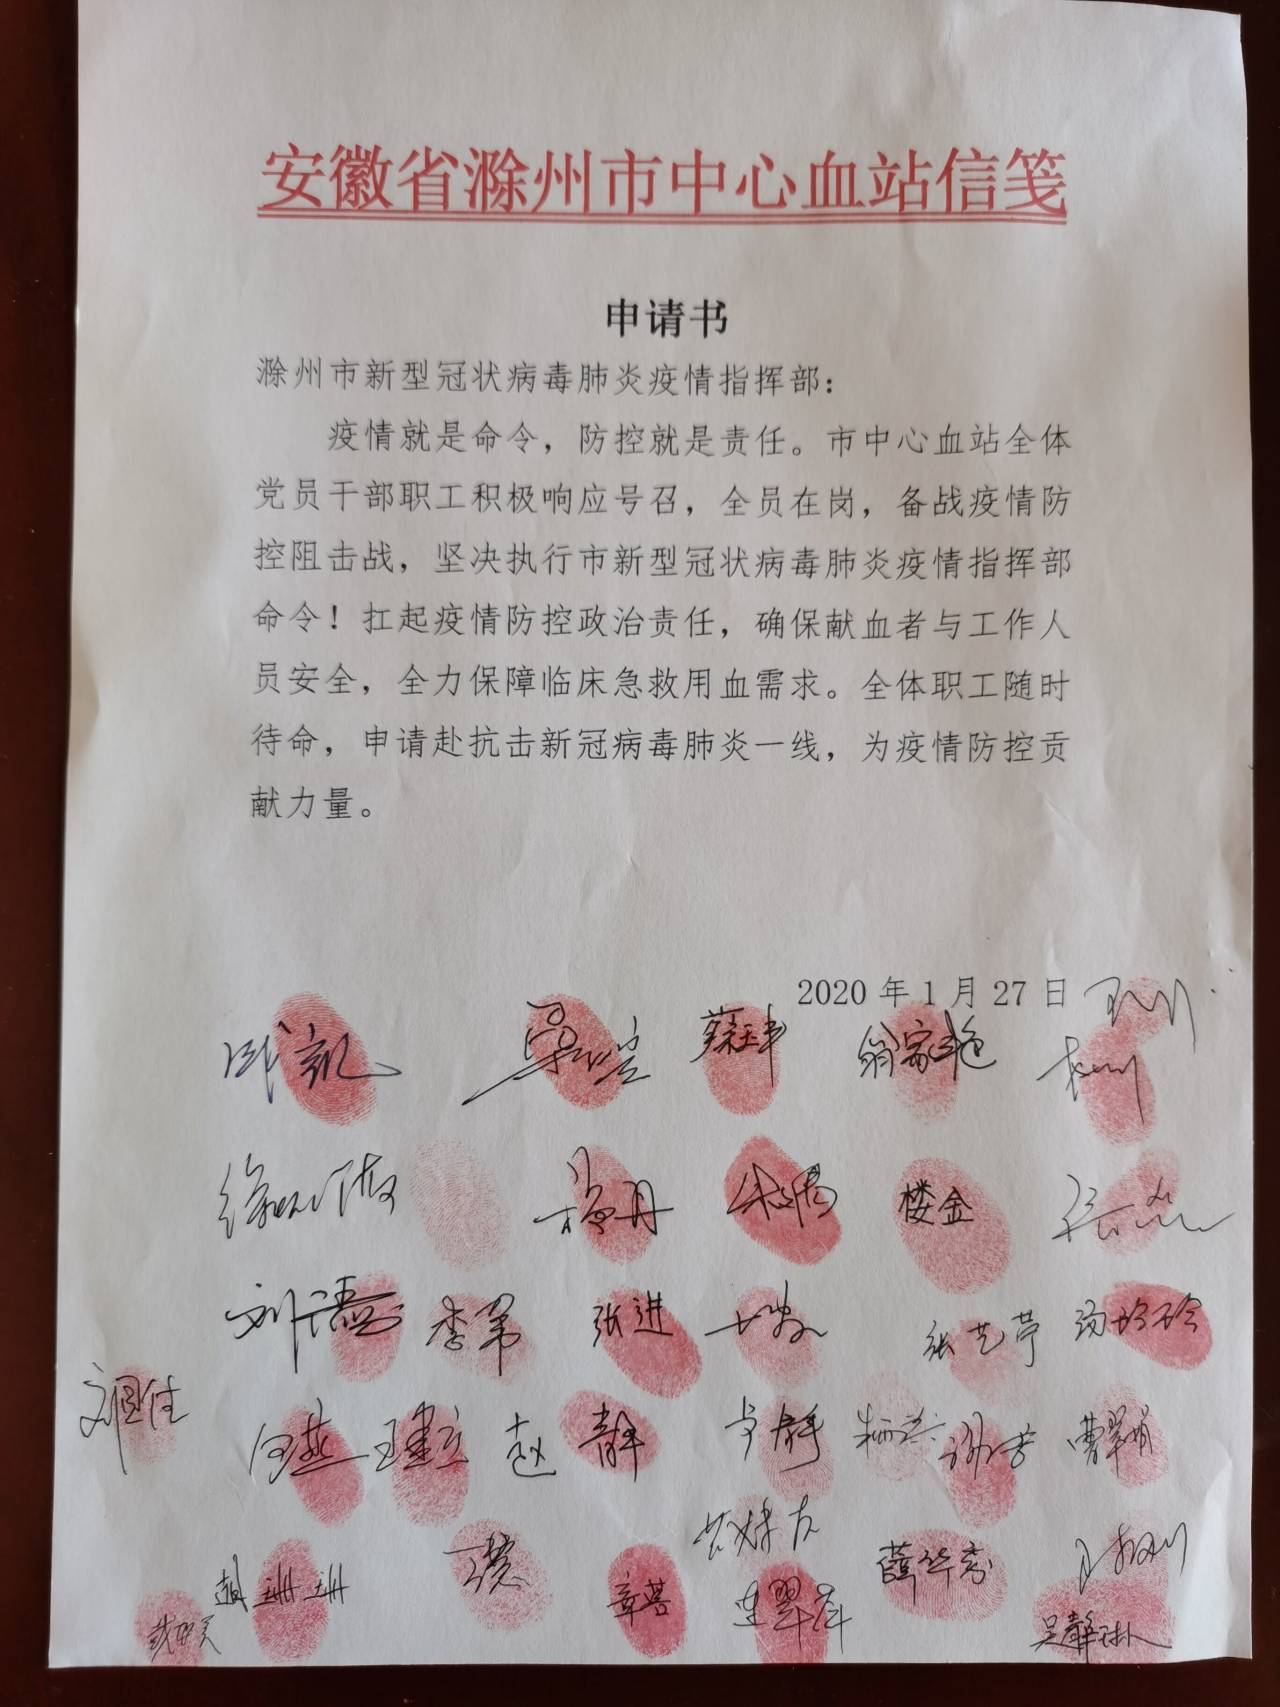 安徽省滁州市中心血站信笺
申请书
滁州市新型冠状病毒肺炎疫情指挥部：
疫情就是命令，防控就是责任。市中心血站全体
党员干部职工积极响应号召，全员在岗，备战疫情防
控阻击战，坚决执行市新型冠状病毒肺炎疫情指挥部
命令！扛起疫情防控政治责任，确保献血者与工作人
员安全，全力保障临床急救用血需求。全体职工随时
待命，申请赴抗击新冠病毒肺炎一线，为疫情防控贡
献力量。
2020 年 1 月 27 日
蔡玉丰 翁家艳
杨丹 楼金
李军 张进 张艺苧 汤玲玲
何燕 王建立 赵静 卢静 谢芳 曹翠娟
赵珊珊 章营 薛华秀
吴静琳